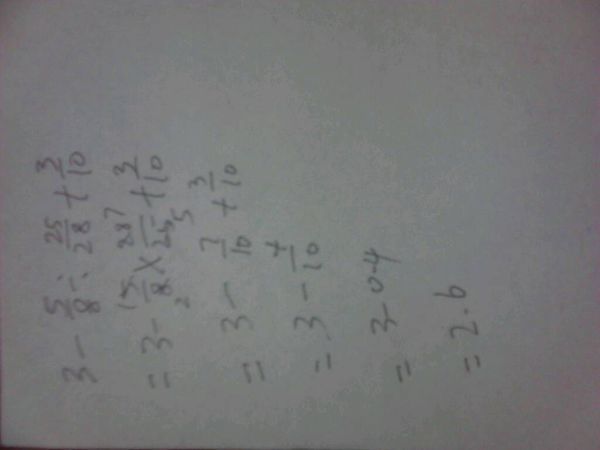 3 - 5/8 ÷ 25/28 + 3/10
= 3 - 5/8 × 28/25 + 3/10
= 3 - 7/10 + 3/10
= 3 - 4/10
= 3-0.4
= 2.6